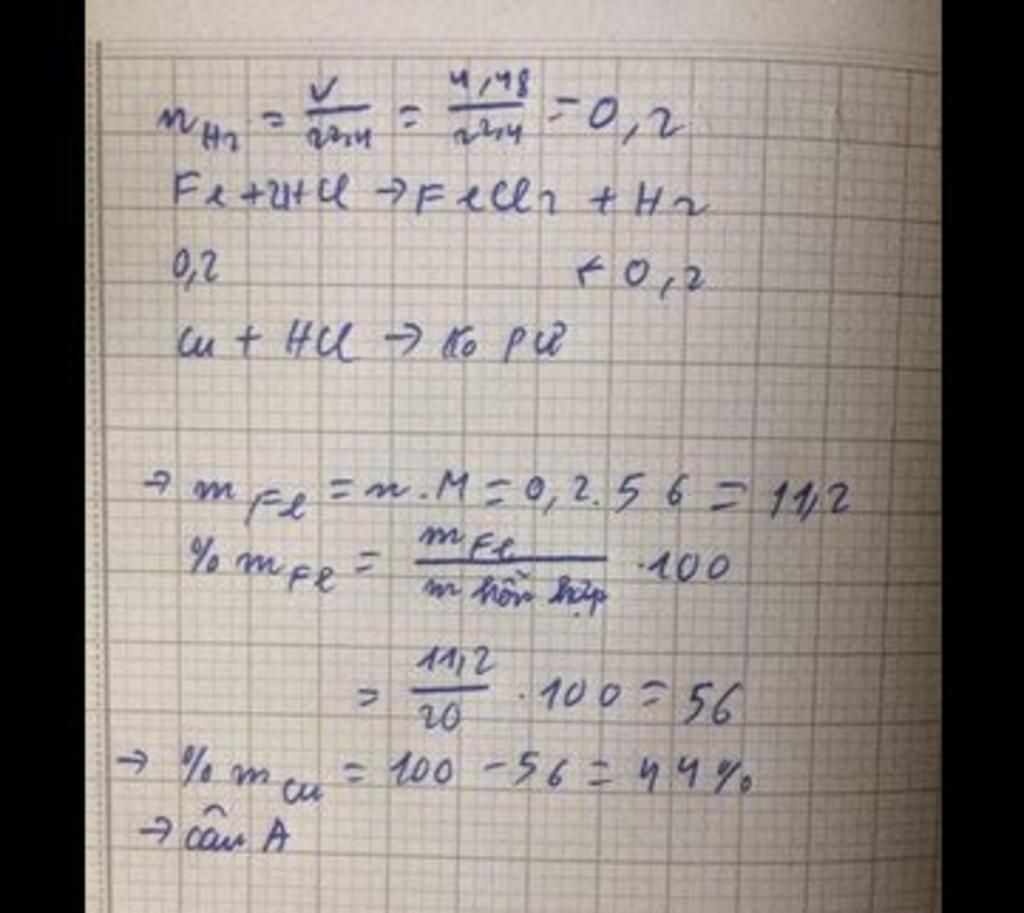 n H2 = V/22,4 = 4,48/22,4 = 0,2
Fe + 2HCl → FeCl2 + H2
0,2 ← 0,2
Cu + HCl → ko pứ
→ m Fe = n.M = 0,2.56 = 11,2
% m Fe = m Fe/m hỗn hợp .100
= 11,2/20 . 100 = 56
→ % m Cu = 100 - 56 = 44%
→ câu A